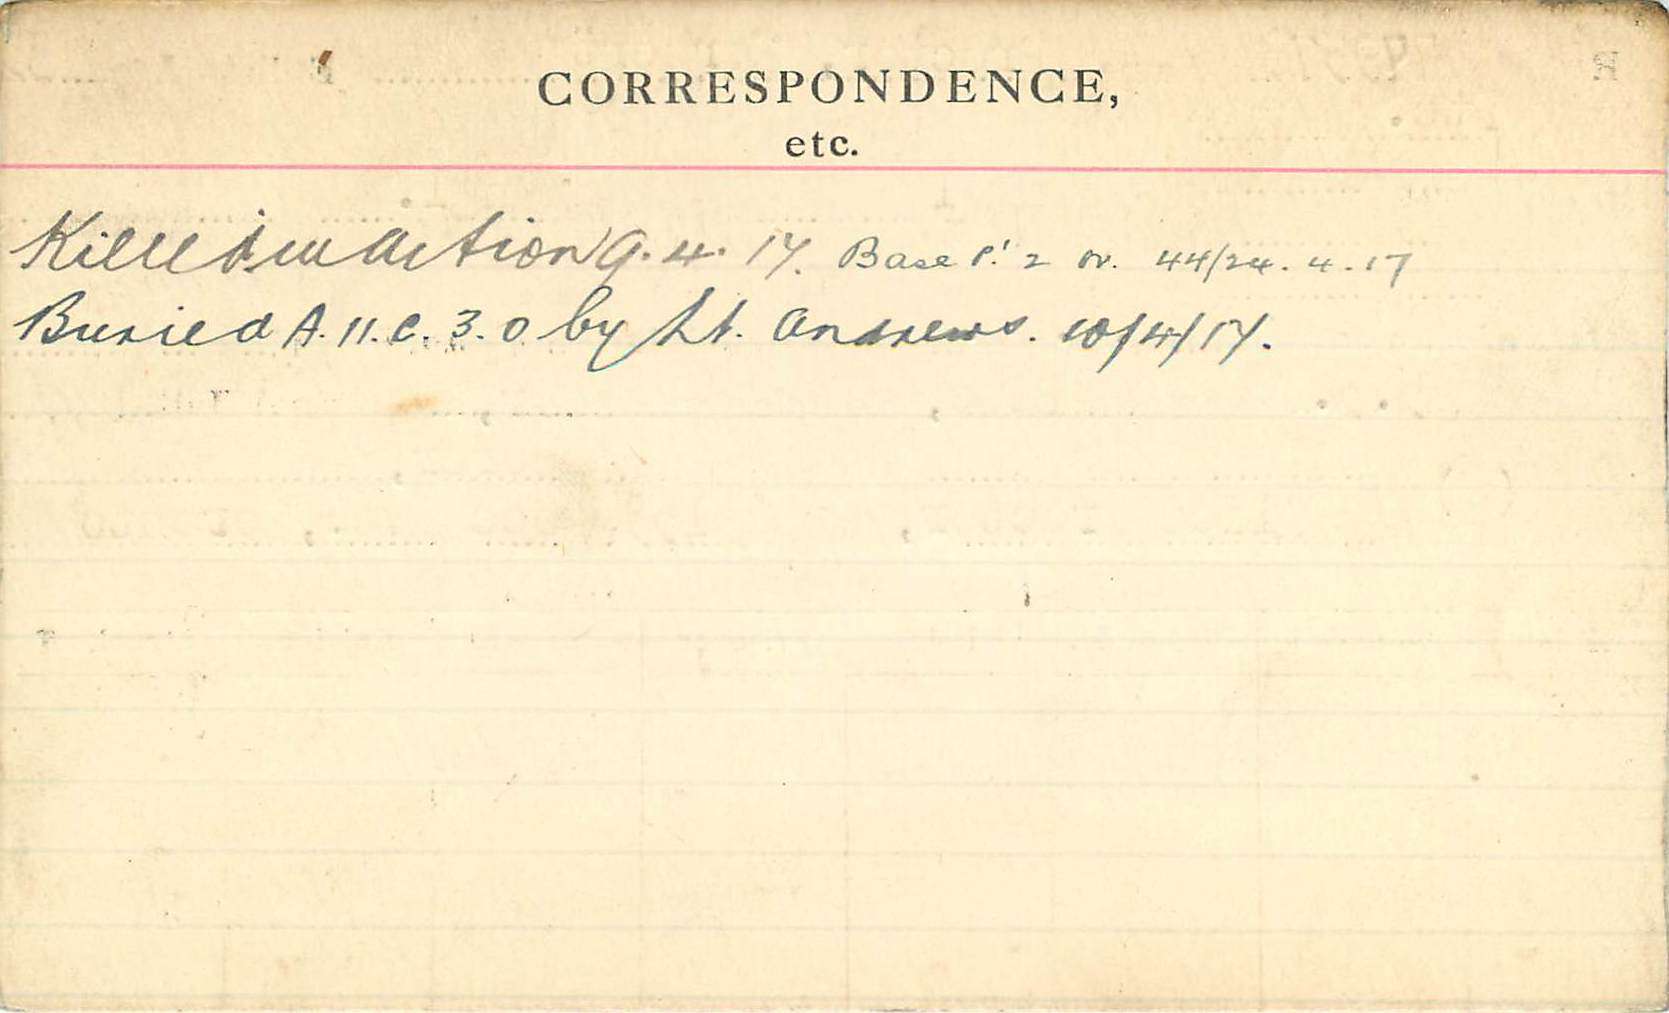 CORRESPONDENCE,
etc.
Killed in action 9.4.17. Base P! 2 Or. 44/24.4.17
Buried A.11.c.3.0 by Lt. Andrews. 10/4/17.